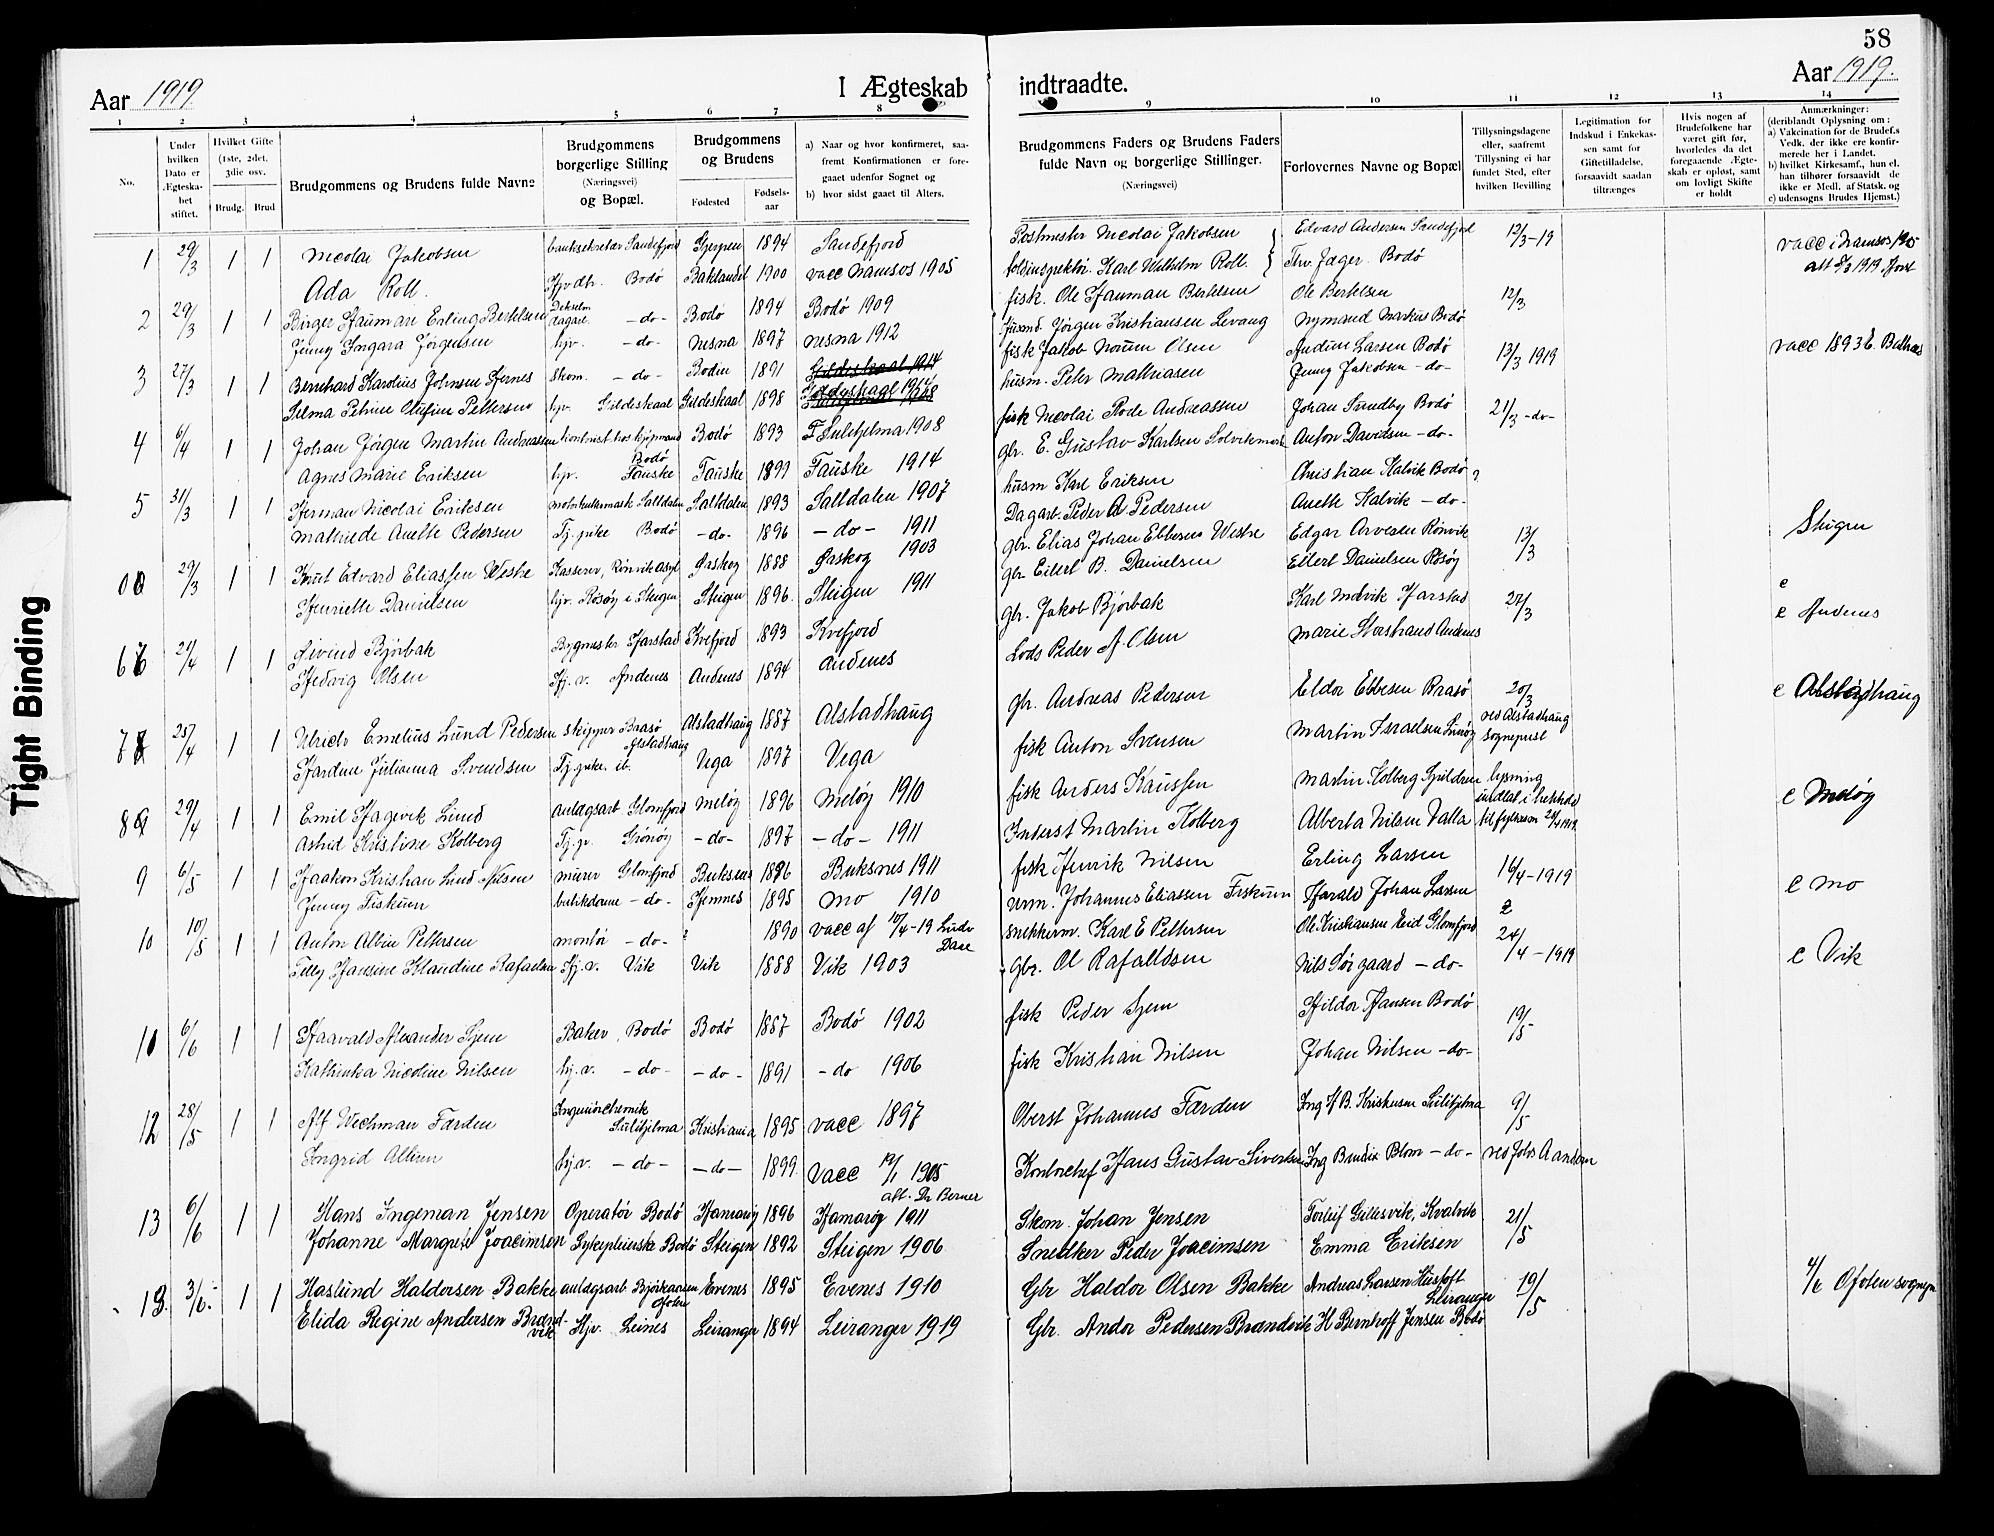 58
Aar 1919
I Ægteskab indtraadte.
Aar 1919.
1 2 3 4 5 6 7 8 9 10 11 12 13 14
No.
Under hvilken Dato er Ægteskabet stiftet.
Hvilket Gifte (1ste, 2det, 3die osv.
Brudg. Brud
Brudgommens og Brudens fulde Navne
Brudgommens borgerlige Stilling (Næringsvei) og Bopæl.
Brudgommens og Brudens
Fødested
Fødselsaar
a) Naar og hvor konfirmeret, saafremt Konfirmationen er foregaaet udenfor Sognet og
b) hvor sidst gaaet til Alters.
Brudgommens Faders og Brudens Faders fulde Navn og borgerlige Stillinger.
(Næringsvei)
Forlovernes Navne og Bopæl
Tillysningsdagene eller, saafremt Tillysning ei har fundet Sted, efter hvilken Bevilling
Legitimation for Indskud i Enkekassen samt for Giftetilladelse, forsaavidt saadan tiltrænges
Hvis nogen af Brudefolkene har været gift før, hvorledes da det foregaaende Ægteskab er opløst, samt om lovligt Skifte er holdt
Anmærkninger:
(deriblandt Oplysning om:
a) Vakcination for de Brudef.s Vedk. der ikke ere konfirmerede her i Landet.
b) hvilket Kirkesamf., hun el. han tilhører forsaavidt de ikke er Medl. af Statsk. og
c) udensogns Brudes Hjemst.)
1 29/3 1 1 Nicolai Jakobsen banksekretær Sandefjord Gjerpen 1894 Sandefjord Postmester Nicolai Jakobsen Edvard Andersen Sandefjord 12/3-19 vacc i Namsos 1905
Ada Roll. Hjvdtr. Bodø Baklandet 1900 vacc Namsos 1905 toldinspektør. Karl Wilhelm Roll. Thv. Jæger Bodø
2 29/3 1 1 Birger Hauman Erling Bertelsen -do- Bodø 1894 Bodø 1909 fisk. Ole Hauman Bertelsen Ole Bertelsen 12/3
Jenny Ingara Jørgensen hjv. -do- Nesna 1897 Nesna 1912 Husmd. Jørgen Kristiansen Levang Nymand Markus Bodø
3 27/3 1 1 Bernhard Karolius Johnsen Hernes Skom. -do- Bodin 1891 Gildeskaal 1914 fisk Jakob Olsen Andun Larsen Bodø 13/3 1919 vacc 1893
Selma Petrine Olufine Pettersen hjv. Gildeskaal Gildeskaal 1898 husm. Peter Mathiasen Jenny Jakobsen -do-
4 6/4 1 1 Johan Jørgen Martin Andreassen kontorist hos kjøpmand Bodø Bodø 1893 Sulitjelma 1908 fisk Nicolai Rode Andreassen Johan Sundby Bodø 21/3 -do-
Agnes Marie Eriksen hjv. Fauske Fauske 1899 Fauske 1914 gbr. E. Gustav Karlsen Anton Davidsen -do-
5 31/3 1 1 Herman Nicolai Eriksen Saltdalen Saltdalen 1893 Saltdalen 1907 husm Karl Eriksen Christian Kalvik Bodø
Mathilde Anette Pedersen Tj. pike Bodø -do- 1896 -do- 1911 Dagarb. Peder A Pedersen Anette Kalvik -do-
29/3 1 1 Knut Edvard Eliassen Westre Kasserer, Rønvik asyl Ørskog 1888 Ørskog 1903 gbr. Elias Johan Ebbesen Westre Edgar Arvesen Rønvik 13/3 Steigen
Henriette Danielsen hjv. Røsøy i Steigen Steigen 1896. Steigen 1911 gbr Eilert B. Danielsen Eilert Danielsen Røsøy
6 21/4 1 1 Øivind Bjørbak Bygmester Harstad Kvefjord 1893 Kvefjord gbr. Jakob Bjørbak Karl Harstad 27/3 c Andenes
Hedvig Olsen Hj. v. Andenes Andenes 1894 Andenes Lods Peder A. Olsen Marie Storstrand Andenes
7 25/4 1 1 Ulrich Emelius Lund Pedersen skipper Brasø Alstadhaug Alstadhaug 1887 Alstadhaug gbr. Andreas Pedersen Eldor Ebbesen Brasø 20/3 ved Alstadhaug sogneprest c Alstadhaug
Hardine Julianna Svendsen Tj. pike ib. Vega 1897 Vega fisk Anton Svensen Martin Israelsen
8 29/4 1 1 Emil Hagevik Lund anlægsarb Glomfjord Meløy 1896 Meløy 1910 fisk Anders Knussen Martin Kolberg lysning c Meløy
Astrid Kristine Kolberg Tj. p. Grønøy -do- 1897 -do- 1911 Inderst Martin Kolberg Alberta Nilsen Valla
9 6/5 1 1 Haakon Kristian Lind Nilsen murer Glomfjord Buksnes 1886 Buksnes 1911 fisk Henrik Nilsen Erling Larsen 16/4-1919 c Mo
Jenny Fiskum butikdame -do- Hemnes 1895 Mo 1910 urm. Johannes Eliassen Fiskum Harald Johan Larsen
10 10/5 1 1 Anton Albin Pettersen montør -do- ? 1890 vacc af 10/4-19 snekkerm. Karl E Pettersen Ole Kristiansen Reid Glomfjord 24/4-1919 c Vik
Tilly Hansine Klaudine Rafaelsen Hj. v. Vik Vik 1888 Vik 1903 Gbr. Ol Rafaelsen Nils Sørgaard -do-
11 6/6 1 1 Haavald Alexander Hjem Baker, Bodø Bodø 1887 Bodø 1902 fisk Peder Hjem Hildor Hansen Bodø 19/5
Kathinka Nicoline Nilsen hj. v. -do- -do- 1891 -do 1906 fisk Kristian Nilsen Johan Nilsen -do-
12 28/5 1 1 Alf Wechman Færden Ingeniør chemik Sulitjelma Kristiania 1895 vacc 1897 Oberst Johannes Færden Ing H B. Kristensen Sulitjelma 9/5
Ingrid hj. v. -do- -do- 1899 vacc 19/1 1905 att. Dr Berner Kontorchef Hans Gustav Ing Bendix Blom -do-
13 6/6 1 1 Hans Ingeman Jensen Operatør Bodø Hamarøy 1896 Hamarøy 1911 Skom. Johan Jensen Torleif Gillesvik, Kvalvik 21/5
Johanne Margrete Joacimsen Sykepleierske Bodø Steigen 1892 Steigen 1906 Snedker Peder Joacimsen Emma Eriksen
13. 3/6 1 1 Haslund Haldorsen Bakke anlægsarb Bjørkaasen Ofoten Evenes 1895 Evenes 1910 Gbr Haldor Olsen Bakke Andreas Larsen Leiranger 19/5 4/6 Ofoten sognepr
Elida Regine Andersen Brændvik Hjv. Leines Leiranger 1894 Leiranger 1919 Gbr. Andor Pedersen Brændvik H Bernhoff Jensen Bodø
Tight Binding